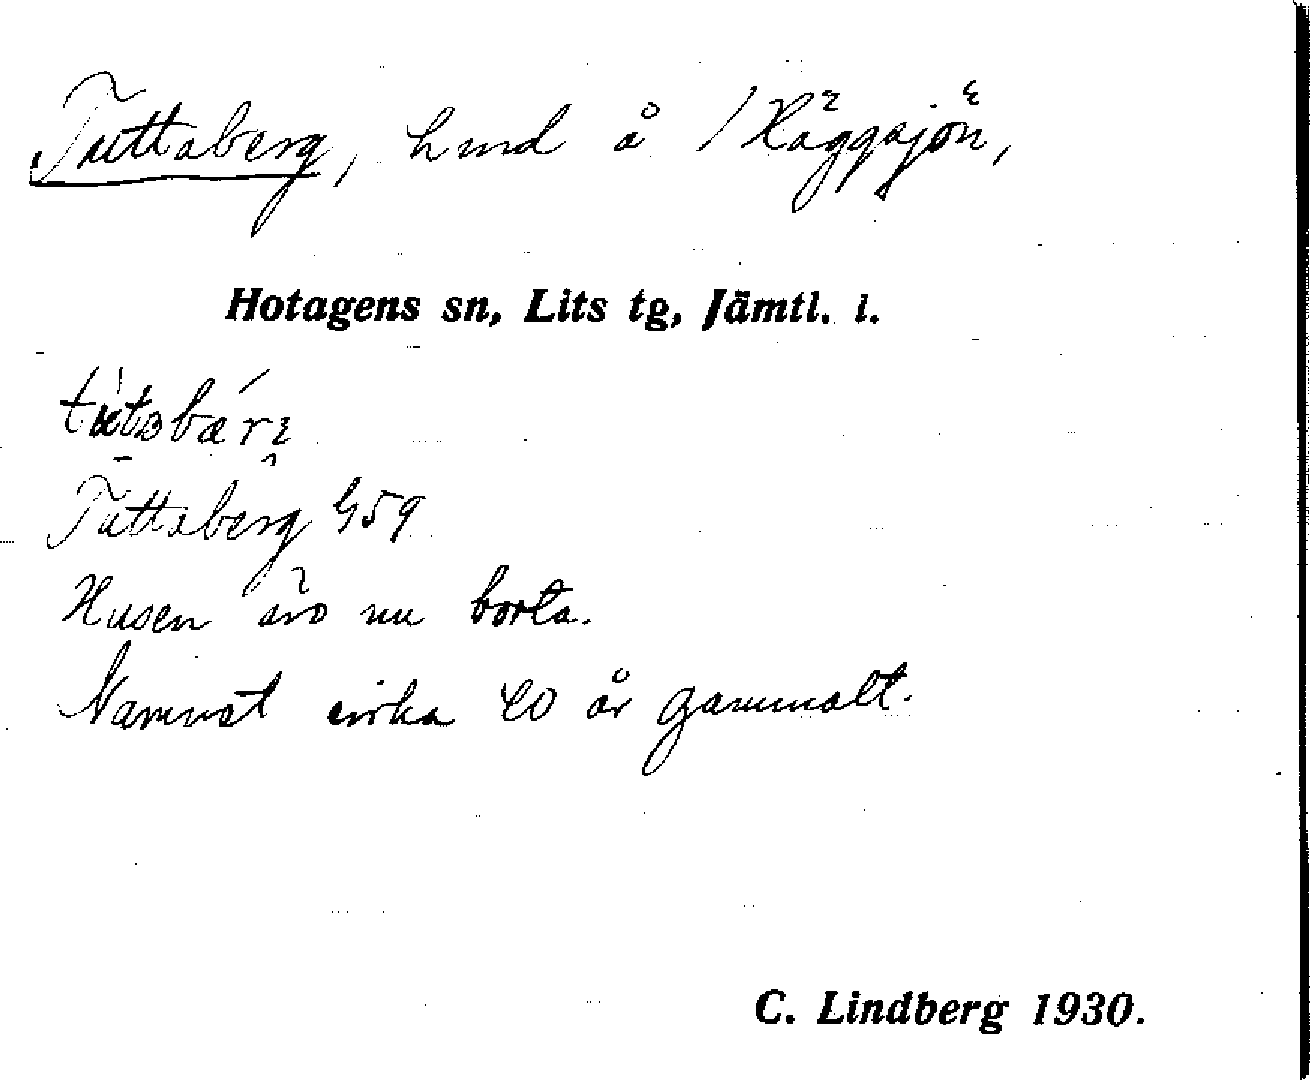 Tuttaberg, lund å /Häggsjön,
Hotagens sn, Lits tg, Jämtl. l.
Tuttaberg G59
Husen äro nu borta.
Namnet cirka 40 år gammalt.
C. Lindberg 1930.